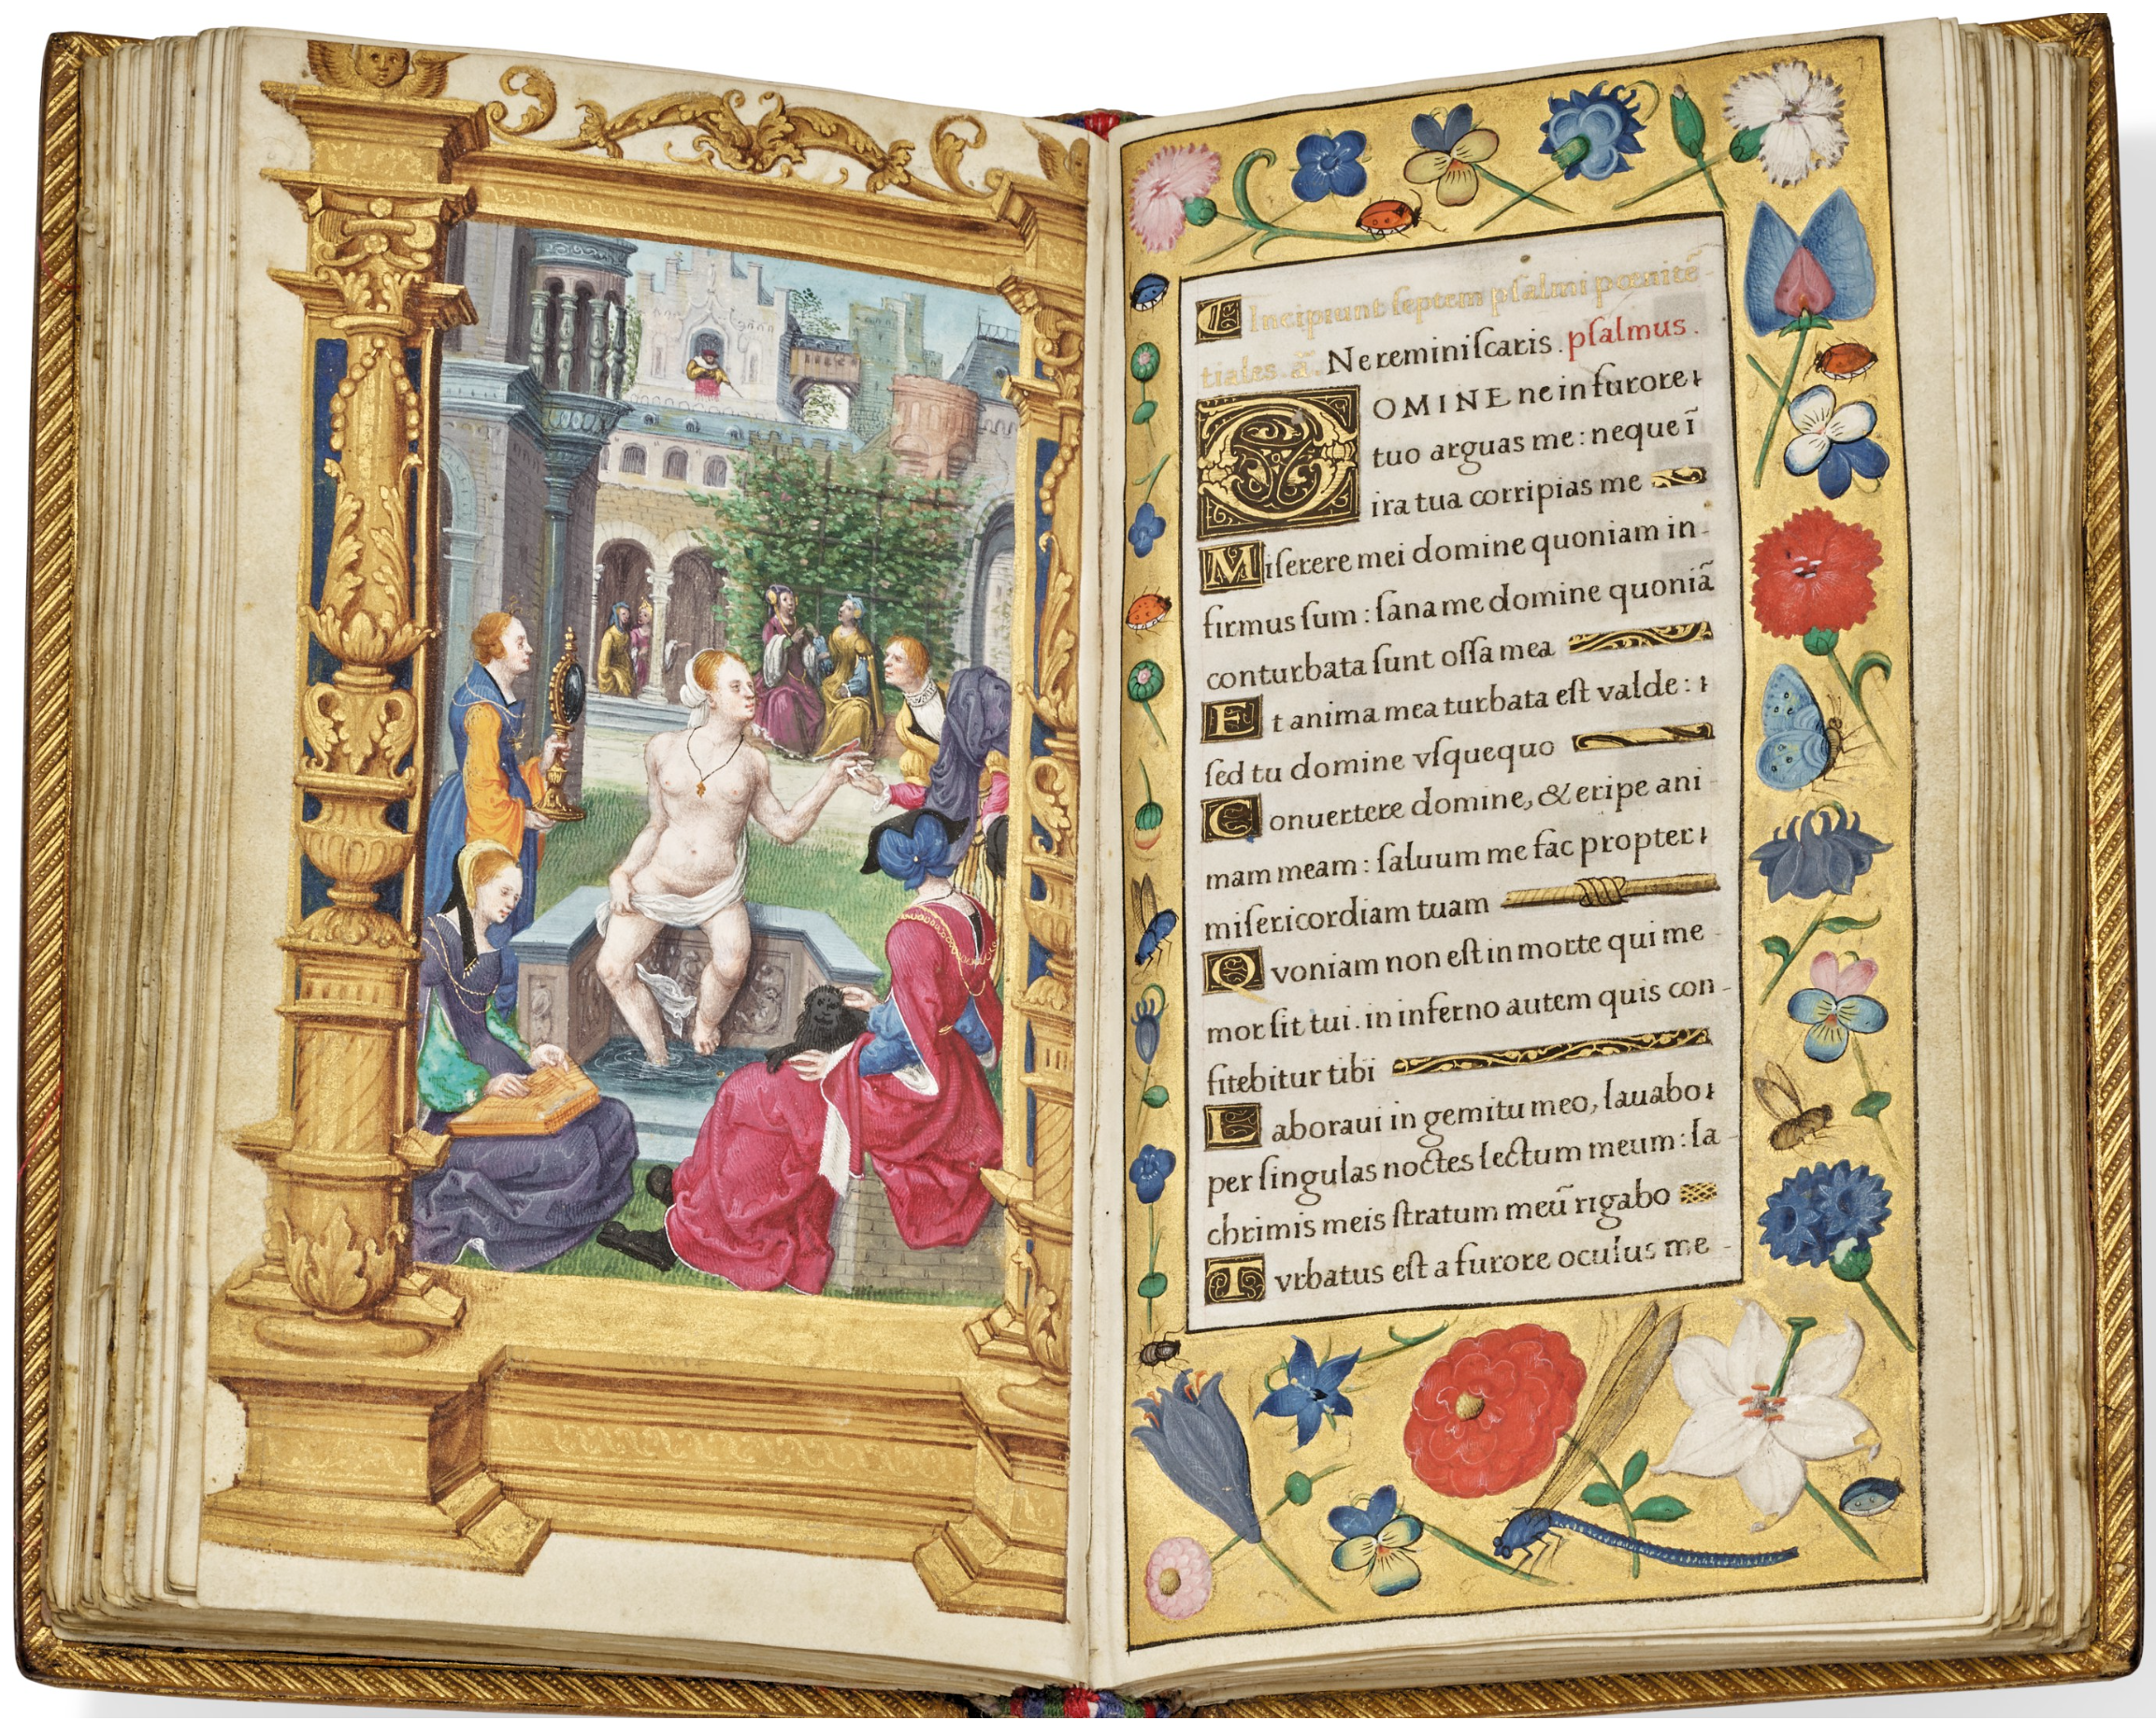 Incipiunt ſeptem pſalmi pœnitẽ-
tiales. ã. Ne reminiſcaris. pſalmus.
DOMINE ne in furore
tuo arguas me: neque ĩ
ira tua corripias me
Miſerere mei domine quoniam in-
firmus ſum: ſana me domine quoniã
conturbata ſunt oſſa mea
Et anima mea turbata eſt valde:
ſed tu domine vſquequo
Conuertere domine, & eripe ani-
mam meam: ſaluum me fac propter
miſericordiam tuam
Qvoniam non eſt in morte qui me-
mor ſit tui. in inferno autem quis con-
fitebitur tibi
Laboraui in gemitu meo, lauabo
per ſingulas noctes lectum meum: la-
chrimis meis ſtratum meũ rigabo
Tvrbatus eſt a furore oculus me-